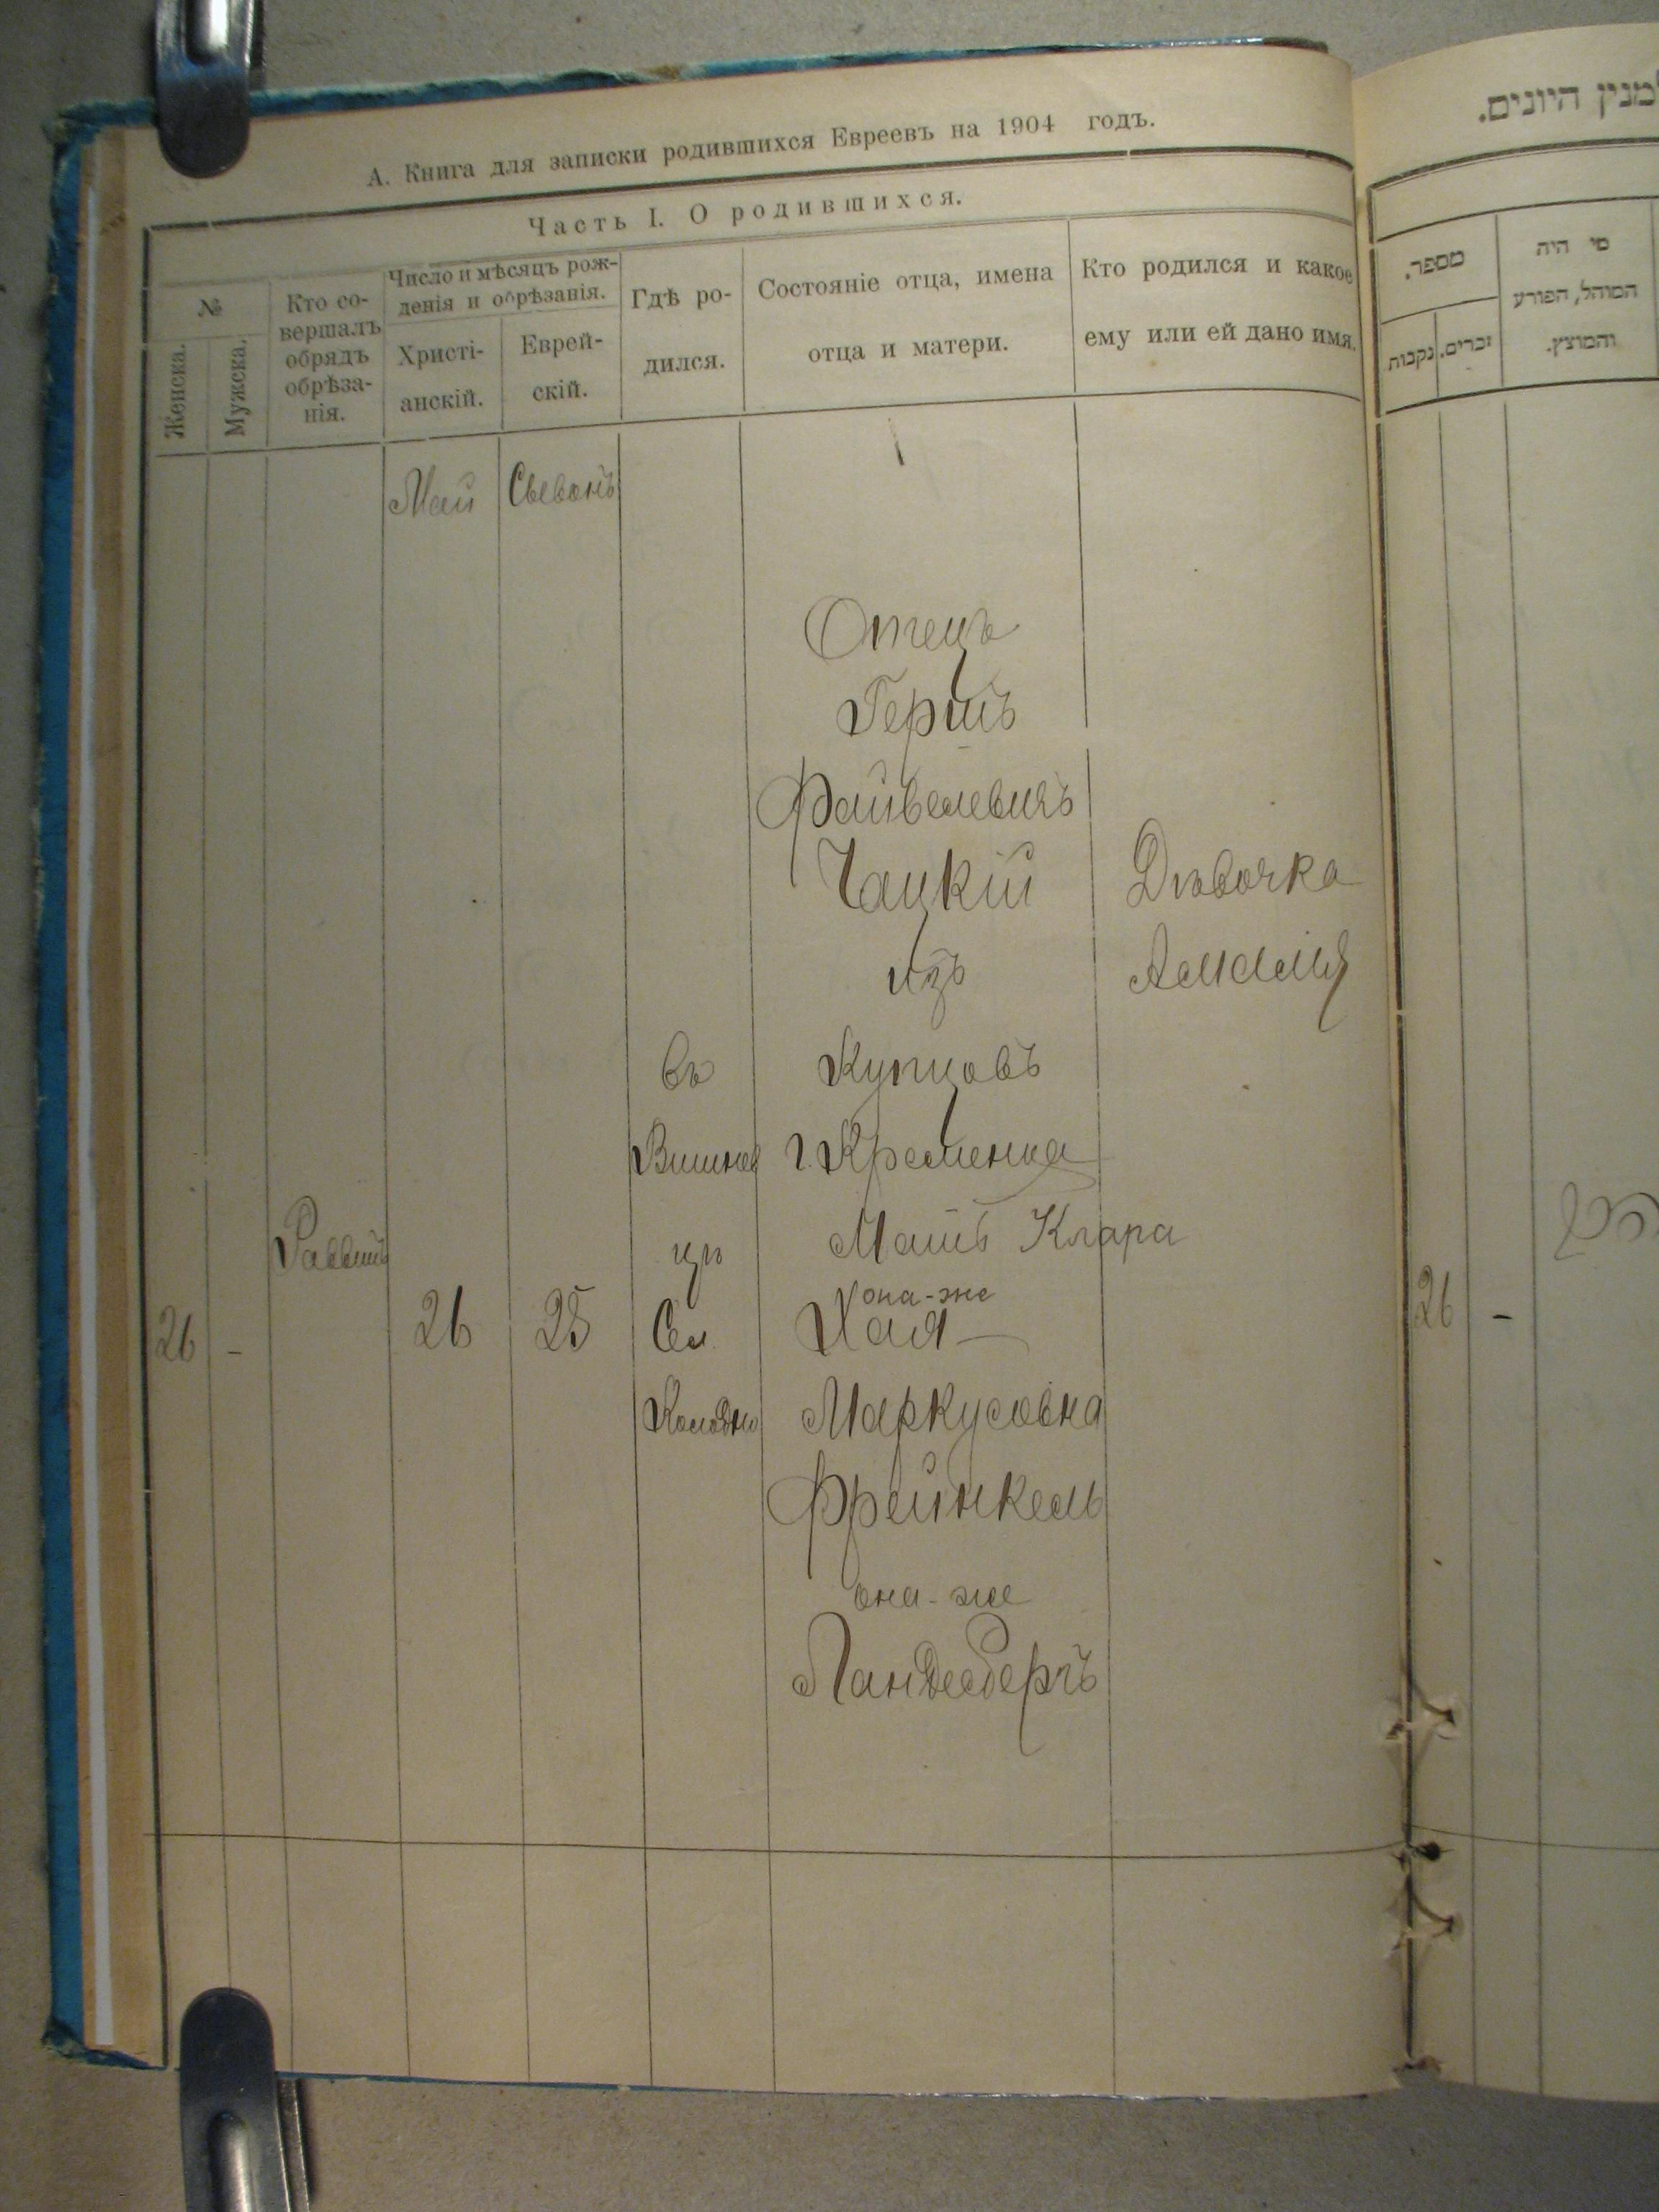 А. Книга для записки родившихся Евреевъ на 1904 годъ.
Часть I. О родившихся.
№
Женска.
Мужска.
Кто со-
вершалъ
обрядъ
обрѣза-
нія.
Число и мѣсяцъ рож-
денія и обрѣзанія.
Христі-
анскій.
Еврей-
скій.
Гдѣ ро-
дился.
Состояніе отца, имена
отца и матери.
Кто родился и какое
ему или ей дано имя.
Май
Сывонъ
26
-
Раввинъ
26
25
въ
Вишнев
цѣ
Сел.
Колодно
Отецъ
Гершъ
Файвелевичъ
Чацкій
изъ
Купцовъ
г. Кременца
Мать Клара
она-же
Хая
Маркусовна
Фрейнкель
она-же
Ландесбергъ
Дѣвочка
Амалія
למנין היונים.
מספר.
נקבות
זכרים.
מי היה
המוהל, הפורע
והמוצץ.
26
-